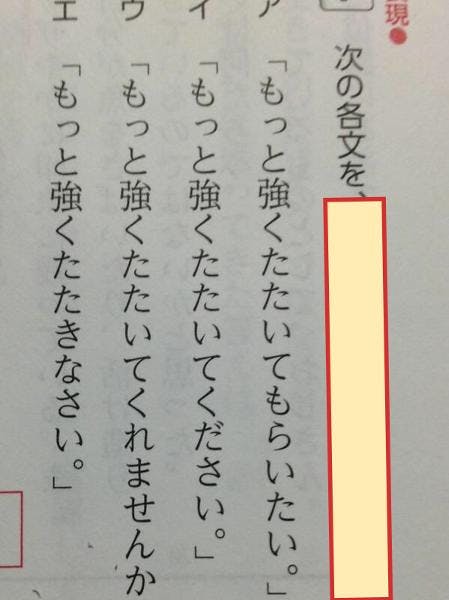 現●
次の各文を、
ア 「もっと強くたたいてもらいたい。」
イ 「もっと強くたたいてください。」
ウ 「もっと強くたたいてくれませんか
エ 「もっと強くたたきなさい。」